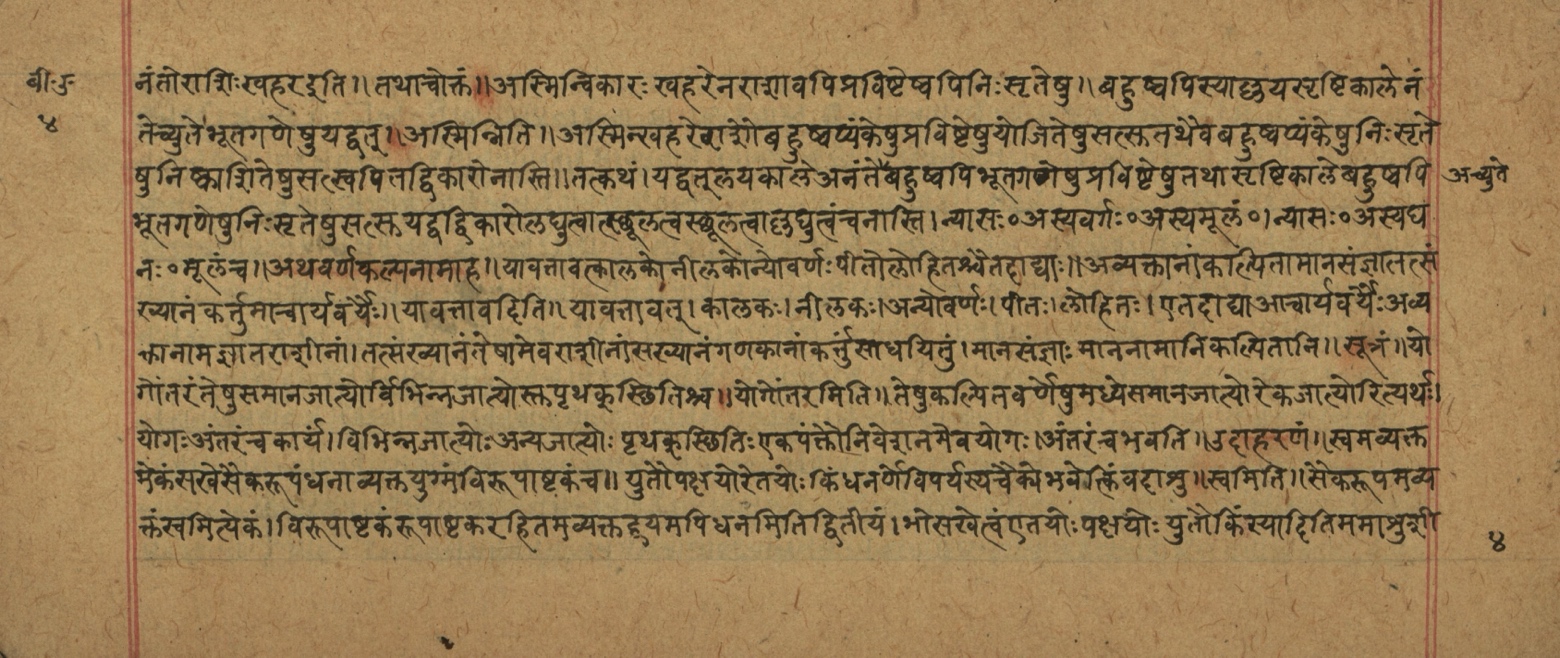 बी॰ उ॰
४
नंतोराशिःखहरइति॥तथाचोक्तं॥अस्मिन्विकारः खहरेनराशावपिप्रविष्टेष्वपिनिःसृतेषु॥बहुष्वपिस्याल्लयसृष्टिकालेनं
तेच्युतेभूतगणेषुयद्वत्॥अस्मिन्निति॥अस्मिन्खहरेराशौबहुष्वप्यंकेषुप्रविष्टेषुयोजितेषुसत्स्तुतथैवबहुष्वप्यंकेषुनिःसृते
षुनिष्काशितेषुसत्स्वपितद्विकारोनास्ति॥तत्कथं।यद्वत्लयकालेअनंतेबहुष्वपिभूतगणेषुप्रविष्टेषुतथासृष्टिकालेबहुष्वपि
अच्युते
भूतगणेषुनिःसृतेषुसत्स्तुयद्वद्विकारोलघुत्वात्स्थूलत्वस्थूलत्वाल्लघुत्वंचनास्ति।न्यासः॰अस्यवर्गः॰अस्यमूलं॰।न्यासः॰अस्यघ
नः॰मूलंच॥अथवर्णकल्पनामाह॥यावत्तावत्कालकोनीलकोन्योवर्णःपीतोलोहितश्चैतदाद्याः॥अव्यक्तानांकल्पितामानसंज्ञातत्सं
ख्यानंकर्त्तुमाचार्यवर्यैः॥यावत्तावदिति॥यावत्तावत्।कालकः।नीलकः।अन्योवर्णः।पीतः।लोहितः।एतदाद्याआचार्यवर्यैःअव्य
क्तानामज्ञातराशीनां।तत्संख्यानंतेषामेवराशीनांसख्यानंगणकानांकर्त्तुंसाधयितुं।मानसंज्ञाःमाननामानिकल्पितानि॥सूत्रं॥यो
गोंतरंतेषुसमानजात्योर्विभिन्नजात्योस्तुपृथक्स्थितिश्च॥योगोंतरमिति॥तेषुकल्पितवर्णेषुमध्येसमानजात्योरेकजात्योरित्यर्थः।
योगःअंतरंचकार्यं।विभिन्नजात्योःअन्यजात्योः पृथक्स्थितिःएकपंक्तौनिवेशनमेवयोगः।अंतरंचभवति॥उदाहरणं॥स्वमव्यक्त
मेकंसखेसैकरूपंधनाव्यक्तयुग्मंविरूपाष्टकंच॥युतौपक्षयोरेतयोःकिंधनर्णेविपर्यस्यचैक्येभवेत्किंवदाशु॥स्वमिति॥सैकरूपमव्य
क्तंस्वमित्येकं।विरूपाष्टकंरूपाष्टकरहितमव्यक्तद्वयमपिधनमितिद्वितीयं।भोसखेत्वंएतयोःपक्षयोःयुतौकिंस्यादितिममाशुशी
४